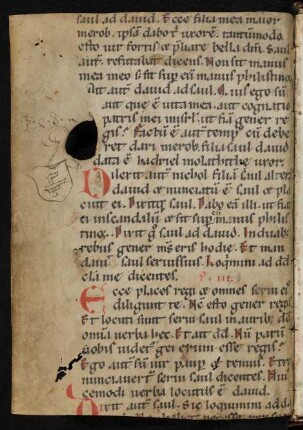 saul ad dauid. Ecce filia mea maior
merob. ipsa dabo t̄ uxorē. tantūmodo
esto uir fortis & pliare bella dn̄i. Saul
aut̄ reputabat dicens. Non sit manus
mea in eo s; sit sup eū manus philistinoꝝ.
Ait aut̄ dauid ad saul. Quis ego sū
aut que ē uita mea. aut cognatio
patris mei in isrl̄. ut fiā gener re
gis. Factū ē aut̄ temp' cū debe
ret dari merob. filia saul. dauid
data ē hadriel molathithe uxor.
Dilexit aut̄ michol filia saul altera
dauid & nunciatū ē saul & pla
cuit ei. Dixitq; saul. Dabo eā illi. ut fiat
ei in scandalū & sit sup eū manus philis
tinoꝝ. Dixit q; saul ad dauid. In duab;
rebus gener m's eris hodie. Et man
dauit saul seruis suis. Loq̄mini ad dd
clā me dicentes.
Ecce places regi & omnes serui ei'
diligunt te. Nc̄ esto gener regis.
Et locuti sunt serui saul in aurib; dd
omīa uerba hec. Et ait dd. Nū parū
uobis uidet' generum esse regis?
Ego aut̄ sū uir paup & tenuis. Et re
nunciauert̄ serui saul dicentes.
cemodi uerba locutus ē dauid.
Dixit aut̄ saul. Sic loquimini ad dd